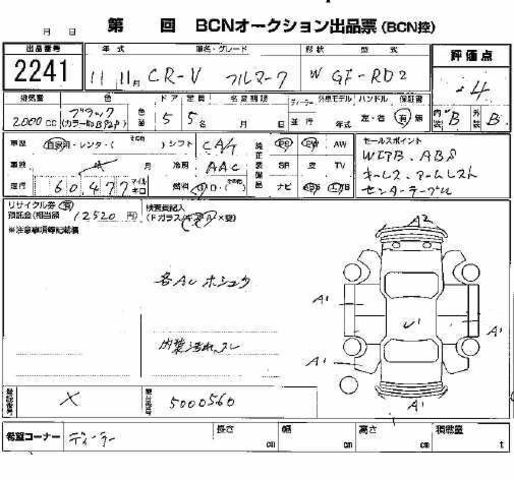 月 日 第 回 BCNオークション出品票(BCN控)
出品番号 年式 車名・グレード 形状 型式 評価点
2241 11 11月 CR-V フルマーク W GF-RD2 4
排気量 色 ドア 定員 名変期限 ディーラー 外車モデル ハンドル 保証書
2000cc ブラック 5 5 月 日 並行 年式 左・右 有・無 内装 B 外装 B
車歴 自家用・レンタ・(その他) シフト CA/T 純正装備品 AW セールスポイント
WエアB.ABS
車検 年 月 冷房 AAC SR 空 TV キーレス.アームレスト
走行 60,477 マイル キロ 燃料 D (その他) ナビ センターテーブル
リサイクル券 有
預託金(相当額) 12520円
検査員記入
(Fガラス/キズ/交換)
※注意事項等記載欄
各ACホシュウ
内装汚れ.スレ
A2
A1
A1
U1
A1
A1
登録番号 X 車台番号 5000560
希望コーナー ディーラー 長さ cm 幅 cm 高さ cm 積載量 t